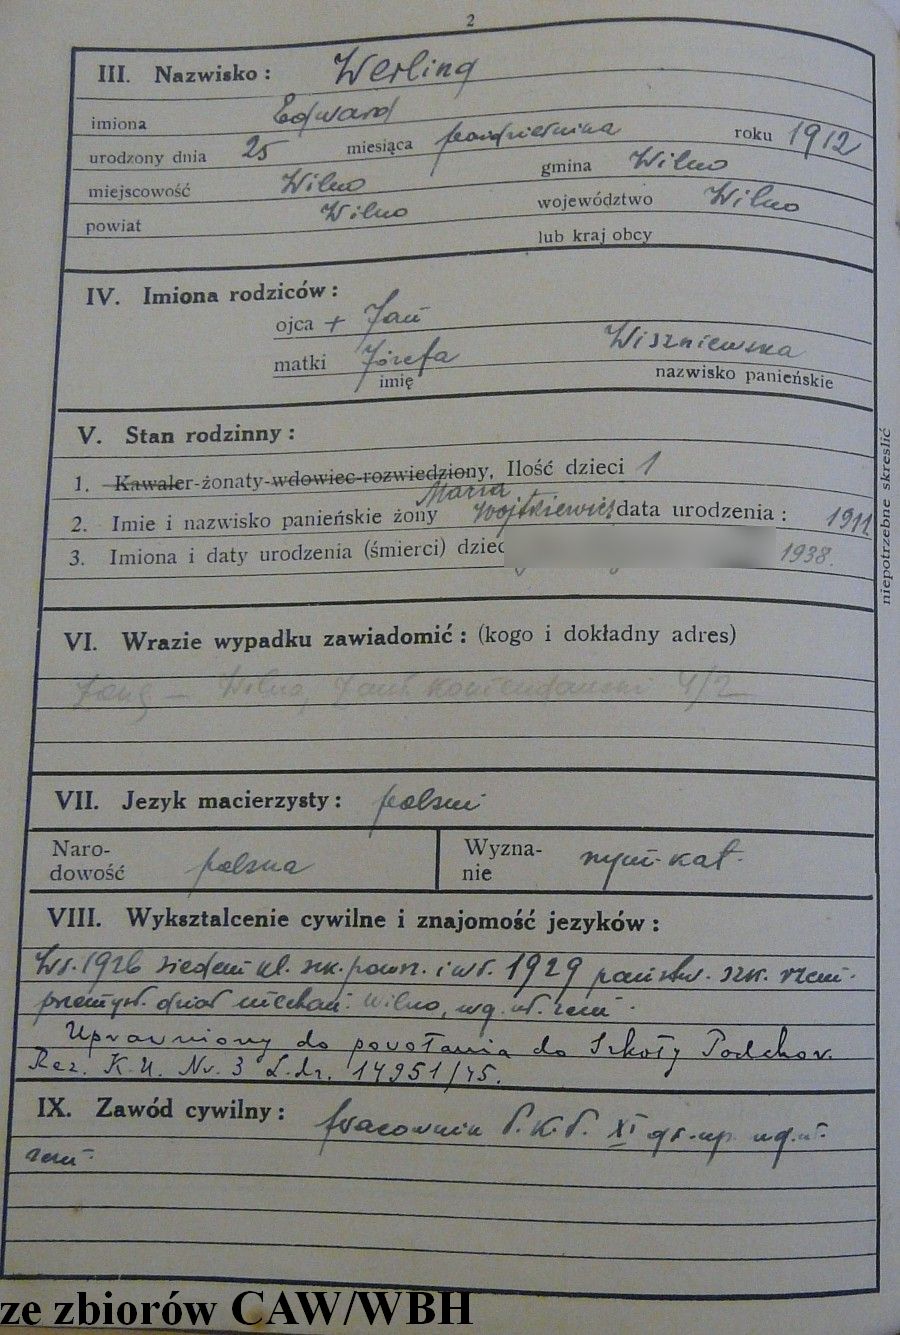 2
III. Nazwisko: Werling
imiona Edward
urodzony dnia 25 miesiąca października roku 1912
miejscowość Wilno gmina Wilno
powiat Wilno województwo Wilno
lub kraj obcy
IV. Imiona rodziców:
ojca + Jan
matki Józefa Wiszniewska
imię nazwisko panieńskie
V. Stan rodzinny:
1. Kawaler-żonaty-wdowiec-rozwiedziony, Ilość dzieci 1
2. Imie i nazwisko panieńskie żony Maria Wojtkiewicz data urodzenia: 1911
3. Imiona i daty urodzenia (śmierci) dziec 1938.
niepotrzebne skreślić
VI. Wrazie wypadku zawiadomić: (kogo i dokładny adres)
Żonę – Wilno, 4/2
VII. Jezyk macierzysty: polski
Naro-
dowość polska
Wyzna-
nie rzym-kat.
VIII. Wyksztalcenie cywilne i znajomość jezyków:
W r. 1926 siedem kl. szk. powsz. i w r. 1929 państw. szk. rzem-
przemysł. dział mechan. Wilno, wg. wł. zezn.
Uprawniony do powołania do Szkoły Podchor.
Rez. K.U. Nr. 3 L.dz. 14951/45.
IX. Zawód cywilny: pracownik P.K.P. XI gr. up. wg. wł.
zezn.
ze zbiorów CAW/WBH